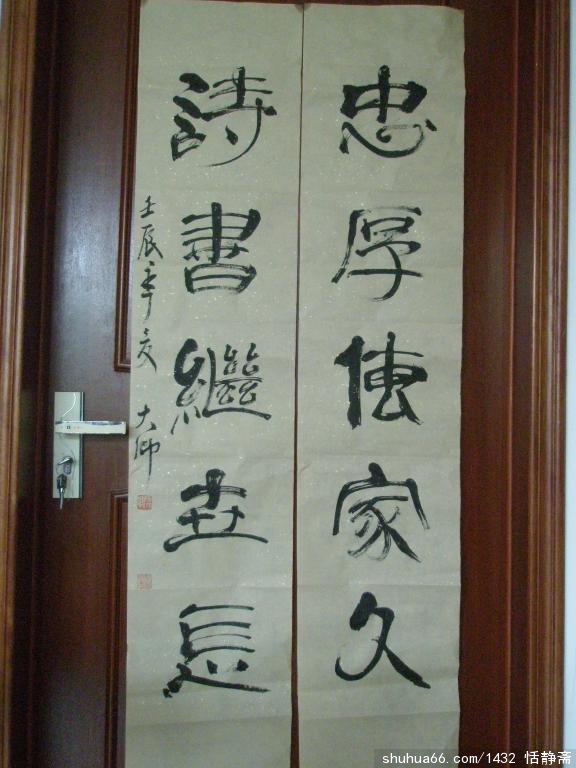 忠厚傳家久
詩書繼世長
壬辰辛亥 大
shuhua66.com/1432 恬静斋